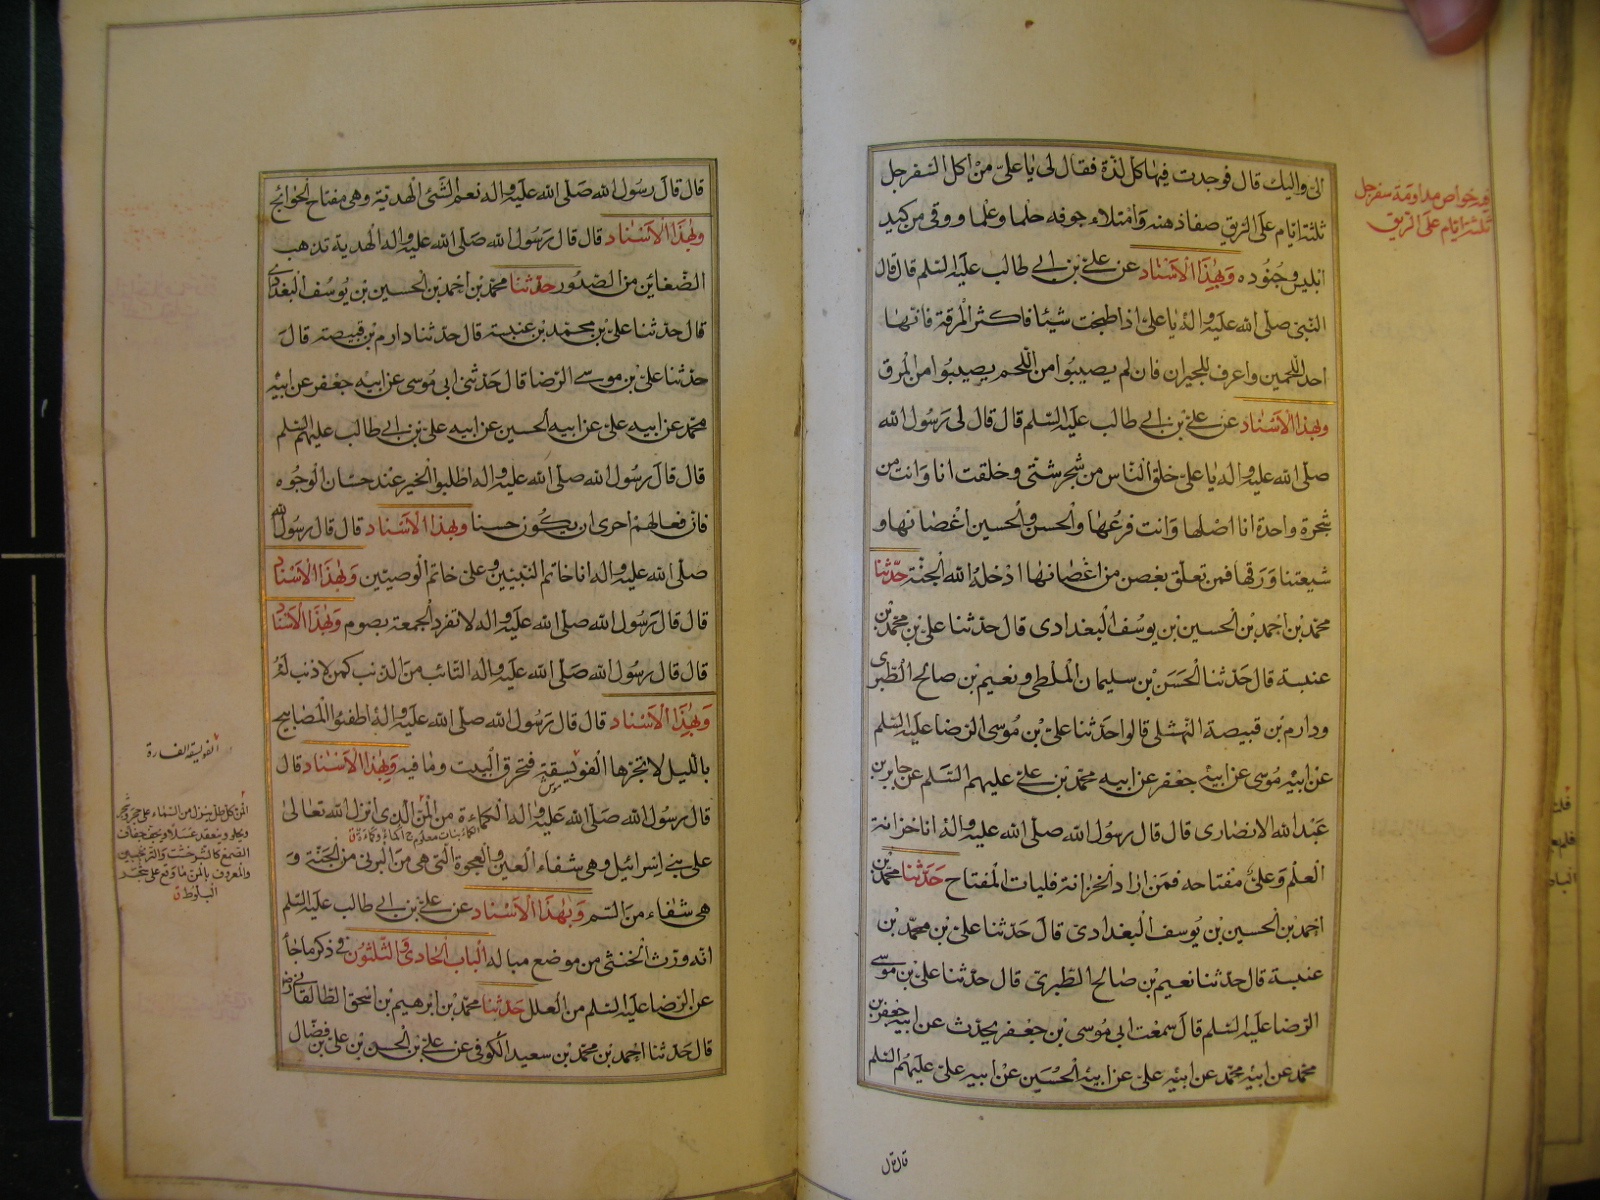 الىّ واليك قال فوجدت فيها كل لذة فقال لى يا علىّ من اكل السفرجل
ثلثة ايام على الريق صفا ذهنه وامتلاء جوفه حلما وعلما ووقى من كيد
ابليس وجنوده وبهذا الاسناد عن على بن ابى طالب عليه السلم قال قال
النبى صلى الله عليه واله يا على اذا طبخت شيئا فاكثر المرقة فانها
احد اللحمين واعرف للجيران فان لم يصيبوا من اللحم يصيبوا من المرق
وبهذا الاسناد عن على بن ابى طالب عليه السلم قال قال لى رسول الله
صلى الله عليه واله يا على خلق الناس من شجر شتى وخلقت انا وانت من
شجرة واحدة انا اصلها وانت فرعها والحسن والحسين اغصانها و
شيعتنا ورقها فمن تعلق بغصن من اغصانها ادخله الله الجنة حدثنا
محمد بن احمد بن الحسين بن يوسف البغدادى قال حدثنا على بن محمد بن
عنبسة قال حدثنا الحسن بن سليمان الملطى ونعيم بن صالح الطبرى
ودارم بن قبيصة النهشلى قالوا حدثنا على بن موسى الرضا عليه السلم
عن ابيه موسى عن ابيه جعفر عن ابيه محمد بن على عليهم السلم عن جابر بن
عبد الله الانصارى قال قال رسول الله صلى الله عليه واله انا خزانة
العلم وعلى مفتاحه فمن اراد الخزانة فليات المفتاح حدثنا محمد بن
احمد بن الحسين بن يوسف البغدادى قال حدثنا على بن محمد بن
عنبسة قال حدثنا نعيم بن صالح الطبرى قال حدثنا على بن موسى
الرضا عليه السلم قال سمعت ابى موسى بن جعفر يحدث عن ابيه جعفر بن
محمد عن ابيه محمد عن ابيه على عن ابيه الحسين عن ابيه على عليهم السلم
قال قال
فيه خواص مداومة سفرجل
ثلثة ايام على الريق
قال قال رسول الله صلى الله عليه واله نعم الشئ الهدية وهى مفتاح الحوائج
وبهذا الاسناد قال قال رسول الله صلى الله عليه واله الهدية تذهب
الضغاين من الصدور حدثنا محمد بن احمد بن الحسين بن يوسف البغدادى
قال حدثنا على بن محمد بن عنبسة قال حدثنا دارم بن قبيصة قال
حدثنا على بن موسى الرضا قال حدثنى ابى موسى عن ابيه جعفر عن ابيه
محمد عن ابيه على عن ابيه الحسين عن ابيه على بن ابى طالب عليهم السلم
قال قال رسول الله صلى الله عليه واله اطلبوا الخير عند حسان الوجوه
فان فعالهم احرى ان يكون حسنا وبهذا الاسناد قال قال رسول الله
صلى الله عليه واله انا خاتم النبيين وعلى خاتم الوصيين وبهذا الاسناد
قال قال رسول الله صلى الله عليه واله لا تفرد الجمعة بصوم وبهذا الاسناد
قال قال رسول الله صلى الله عليه واله التائب من الذنب كمن لا ذنب له
وبهذا الاسناد قال قال رسول الله صلى الله عليه واله اطفئوا المصابيح
بالليل لا تجرها الفويسقة فتحرق البيت وما فيه وبهذا الاسناد قال
قال رسول الله صلى الله عليه واله الكماءة من المن الذى انزل الله تعالى
على بنى اسرائيل وهى شفاء العين والعجوة التى هى من البرنى من الجنة و
هى شفاء من السم وبهذا الاسناد عن على بن ابى طالب عليه السلم
انه ورث الخنثى من موضع مباله الباب الحادى والثلثون فى ذكر ما جاء
عن الرضا عليه السلم من العلل حدثنا محمد بن ابرهيم بن اسحق الطالقانى رض
قال حدثنا احمد بن محمد بن سعيد الكوفى عن على بن الحسن بن على بن فضال
الفويسقة الفارة
المن كل طل ينزل من السماء على حجر وشجر
ويحلو وينعقد عسلا ويجف جفاف
الصمغ كالشيرخشت والترنجبين
والمعروف بالمن ما وقع على شجر
البلوط ق